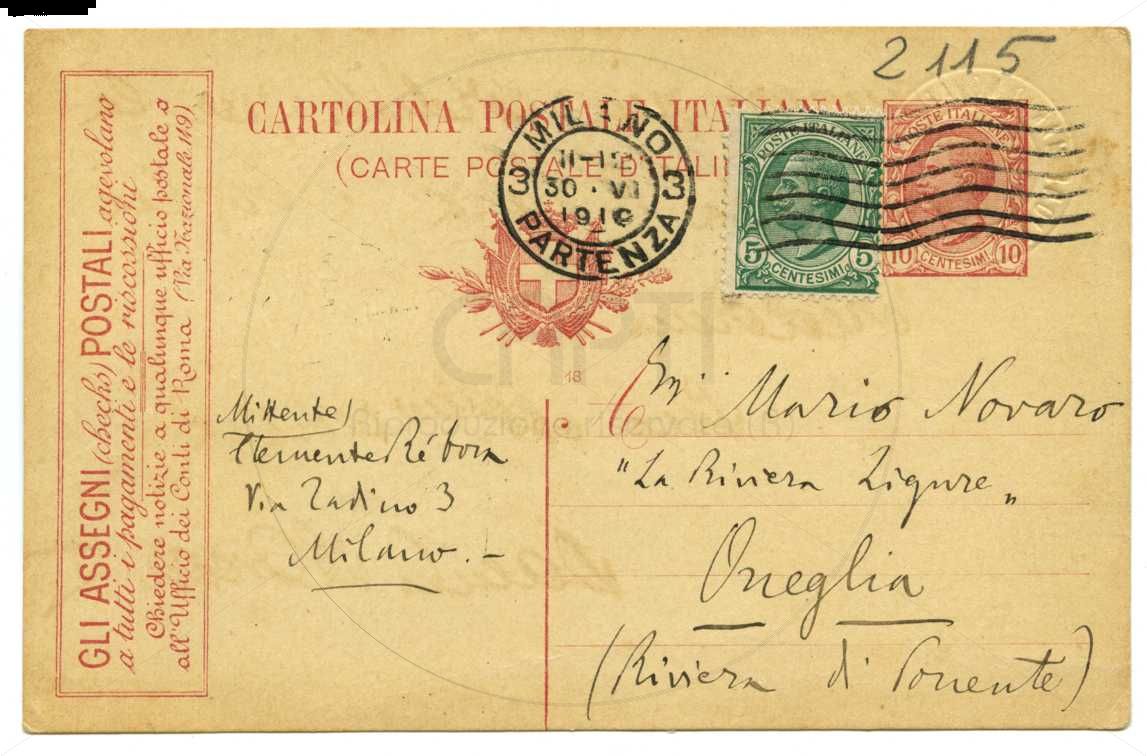 2115
CARTOLINA POSTALE ITALIANA
(CARTE POSTALE D'ITALI
MILANO
3 11-12 3
30 · VI
191
PARTENZA
POSTE ITALIANE
5 CENTESIMI 5
POSTE ITALIANE
10 CENTESIMI 10
GLI ASSEGNI (checks) POSTALI agevolano
a tutti i pagamenti e le riscossioni
Chiedere notizie a qualunque ufficio postale o
all'Ufficio dei Conti di Roma (Via Nazionale 149)
18
CAPTI
Riproduzione riservata (R)
Mittente)
Clemente Rébora
Via Tadino 3
Milano. -
Mario Novaro
"La Riviera Ligure"
Oneglia
(Riviera di Ponente)